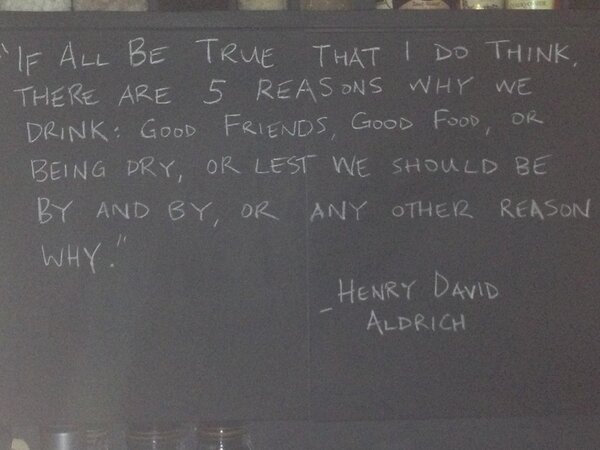 "IF ALL BE TRUE THAT I DO THINK,
THERE ARE 5 REASONS WHY WE
DRINK: GOOD FRIENDS, GOOD FOOD, OR
BEING DRY, OR LEST WE SHOULD BE
BY AND BY, OR ANY OTHER REASON
WHY."
- HENRY DAVID
ALDRICH